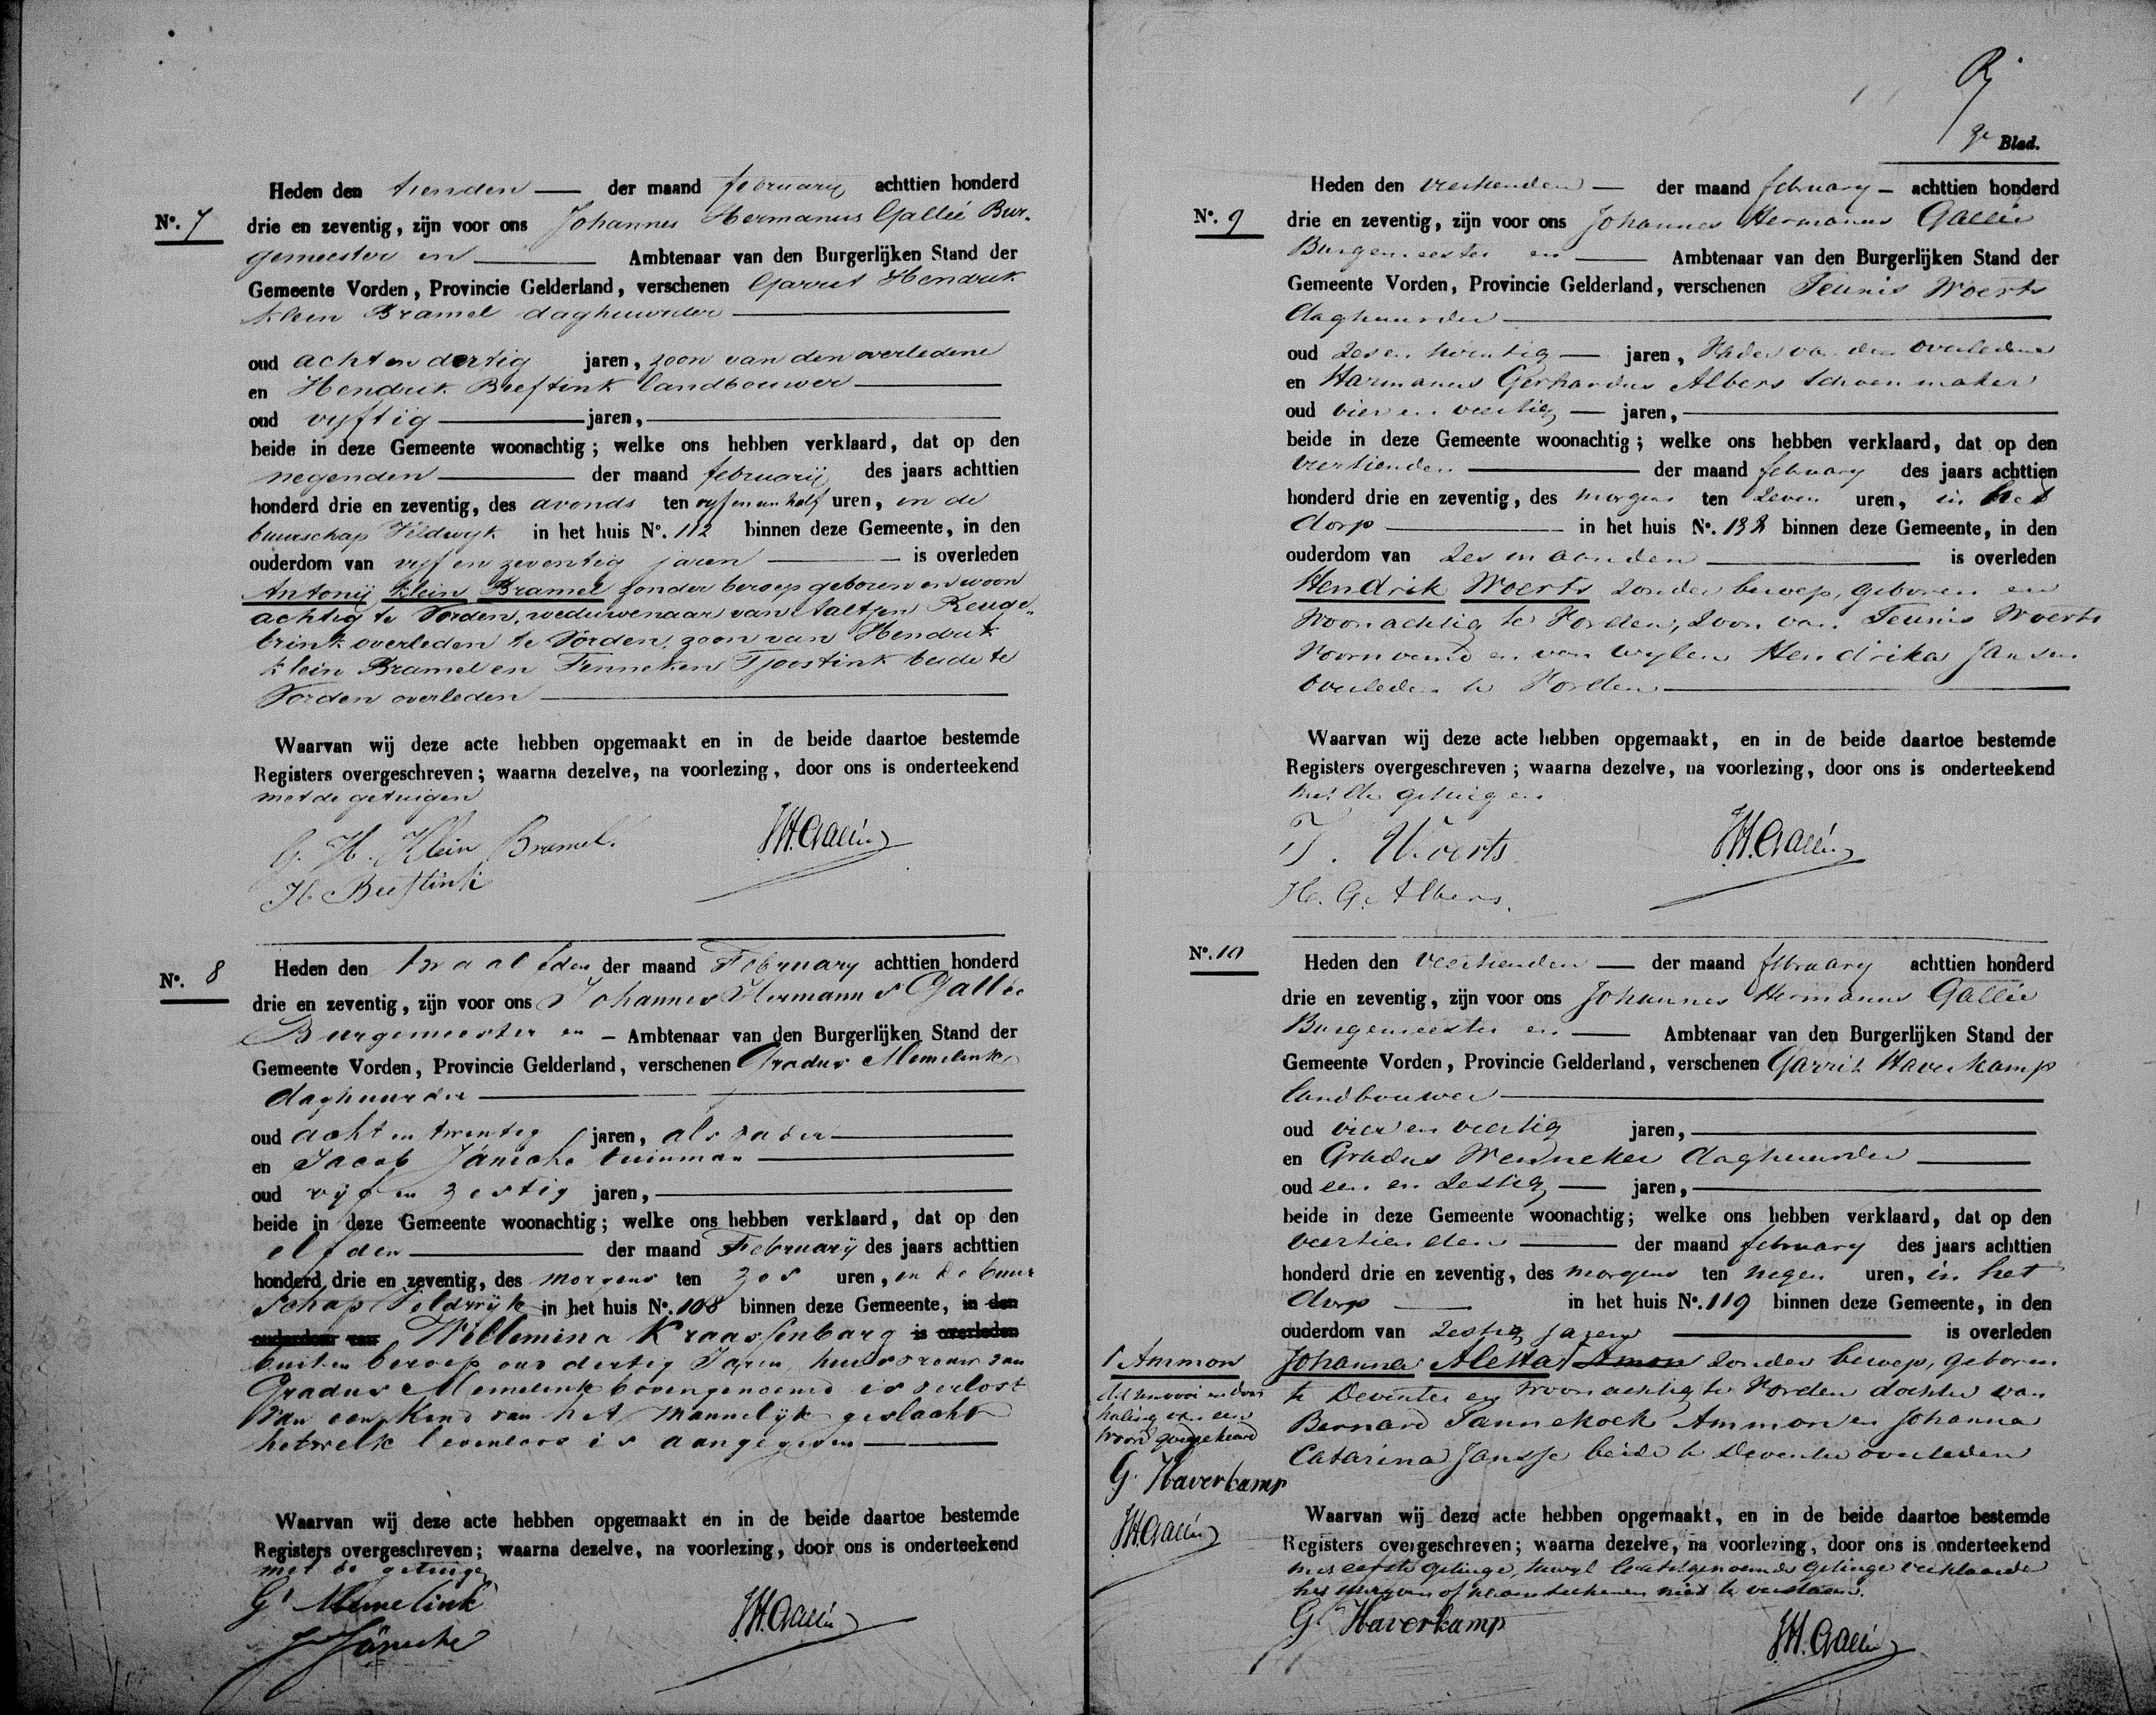 Heden den tienden — der maand february achttien honderd
No. 7 drie en zeventig, zijn voor ons Johannes Hermanus Gallée Bur-
gemeester en — Ambtenaar van den Burgerlijken Stand der
Gemeente Vorden, Provincie Gelderland, verschenen Garrit Hendrik
klein Bramel daghuurder —
oud acht en dertig jaren, zoon van den overledene
en Hendrik Bieftink landbouwer —
oud vyftig — jaren, —
beide in deze Gemeente woonachtig; welke ons hebben verklaard, dat op den
negenden — der maand februarij des jaars achttien
honderd drie en zeventig, des avonds ten vyf en een half uren, in de
buurschap Veldwyk in het huis No. 112 binnen deze Gemeente, in den
ouderdom van vyf en zeventig jaren — is overleden
Antonij klein Bramel zonder beroep geboren en woon
achtig te Vorden, weduwenaar van Aaltjen Reuge„
brink overleden te Vorden, zoon van Hendrik
klein Bramel en Fenneken Tjoostink beide te
Vorden overleden —
Waarvan wij deze acte hebben opgemaakt en in de beide daartoe bestemde
Registers overgeschreven; waarna dezelve, na voorlezing, door ons is onderteekend
met de getuigen
G. H. Klein Bramel. JH. Gallée
H. Bieftink
No. 8 Heden den twaalfden der maand February achttien honderd
drie en zeventig, zijn voor ons Johannes Hermanus Gallée
Burgemeester en — Ambtenaar van den Burgerlijken Stand der
Gemeente Vorden, Provincie Gelderland, verschenen Gradus Memelink
daghuurder —
oud acht en twentig jaren, als vader —
en Jacob Jäniche tuinman —
oud vijf en zestig jaren, —
beide in deze Gemeente woonachtig; welke ons hebben verklaard, dat op den
elfden — der maand Februarij des jaars achttien
honderd drie en zeventig, des morgens ten zes uren, in de buur
schap Veldwijk in het huis No. 108 binnen deze Gemeente, in den
ouderdom van Willemina Kraassenbarg is overleden
buiten beroep oud dertig Jaren, huisvrouw van
Gradus Memelink bovengenoemd is verlost
van een Kind van het mannelijk geslacht
hetwelk levenloos is aangegeven —
Waarvan wij deze acte hebben opgemaakt en in de beide daartoe bestemde
Registers overgeschreven; waarna dezelve, na voorlezing, door ons is onderteekend
met de getuige
G Memelink JH. Gallée
J Jäniche
3e Blad.
Heden den veertienden — der maand february — achttien honderd
No. 9 drie en zeventig, zijn voor ons Johannes Hermanus Gallée
Burgemeester en — Ambtenaar van den Burgerlijken Stand der
Gemeente Vorden, Provincie Gelderland, verschenen Teunis Woerts
daghuurder —
oud zes en twentig — jaren, Vader van den overledene
en Harmanus Gerhardus Albers schoenmaker
oud vier en veertig — jaren, —
beide in deze Gemeente woonachtig; welke ons hebben verklaard, dat op den
veertienden — der maand february des jaars achttien
honderd drie en zeventig, des morgens ten zeven uren, in het
dorp — in het huis No. 138 binnen deze Gemeente, in den
ouderdom van zes maanden — is overleden
Hendrik Woerts zonder beroep, geboren en
Woonachtig te Vorden, Zoon van Teunis Woerts
Voornoemd en van wylen Hendrika Jansen
overleden te Vorden —
Waarvan wij deze acte hebben opgemaakt, en in de beide daartoe bestemde
Registers overgeschreven; waarna dezelve, na voorlezing, door ons is onderteekend
met de getuigen
T. Woerts JH. Gallée
H. G. Albers.
No. 10 Heden den veertienden — der maand february achttien honderd
drie en zeventig, zijn voor ons Johannes Hermanus Gallée
Burgemeester en — Ambtenaar van den Burgerlijken Stand der
Gemeente Vorden, Provincie Gelderland, verschenen Garrit Haverkamp
landbouwer —
oud vier en veertig jaren, —
en Gradus Wenneker daghuurder —
oud een en zestig — jaren, —
beide in deze Gemeente woonachtig; welke ons hebben verklaard, dat op den
veertienden — der maand february des jaars achttien
honderd drie en zeventig, des morgens ten negen uren, in het
dorp — in het huis No. 119 binnen deze Gemeente, in den
ouderdom van zestig jaren — is overleden
Johanna Aletta Amon zonder beroep, geboren
te Deventer en Woonachtig te Vorden dochter van
Bernard Pannekoek Ammon en Johanna
Catarina Jansse beide te Deventer overleden
Ammon
dit renvooi en door
haling van een
woord goedgekeurd
G. Haverkamp
JH. Gallée
Waarvan wij deze acte hebben opgemaakt, en in de beide daartoe bestemde
Registers overgeschreven; waarna dezelve, na voorlezing, door ons is onderteekend
met eerste getuige, terwyl laatstgenoemde getuige verklaarde
het schryven of naamteekenen niet te verstaan.
G. Haverkamp JH. Gallée